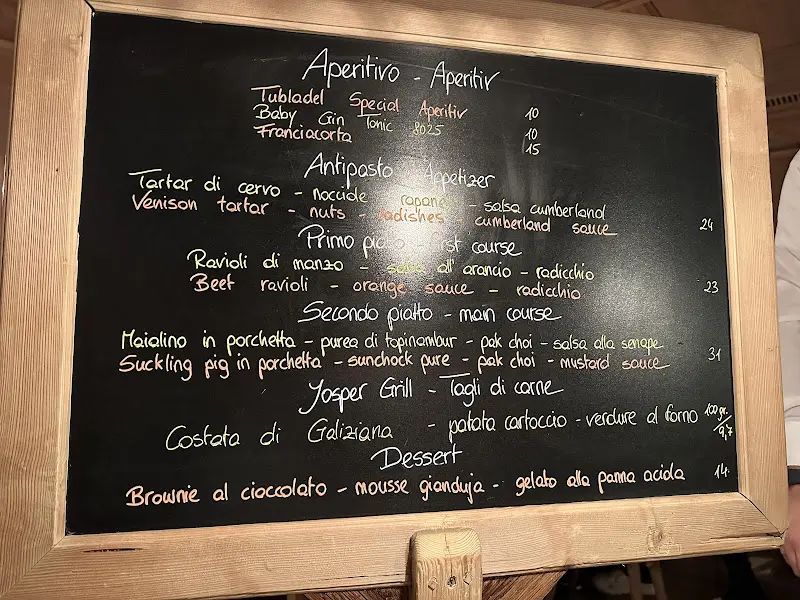 Aperitivo - Aperitiv
Tubladel Special Aperitiv 10
Baby Gin Tonic 8025 10
Franciacorta 15
Antipasto Appetizer
Tartar di cervo - nocciole rapane - salsa cumberland
Venison tartar - nuts - radishes - cumberland sauce 24
Primo piatto - first course
Ravioli di manzo - salsa all'arancio - radicchio
Beef ravioli - orange sauce - radicchio 23
Secondo piatto - main course
Maialino in porchetta - purea di topinambur - pak choi - salsa alla senape
Suckling pig in porchetta - sunchock pure - pak choi - mustard sauce 31
Josper Grill - Tagli di carne
Costata di Galiziana - patata cartoccio - verdure al forno 100gr./9,7
Dessert
Brownie al cioccolato - mousse gianduja - gelato alla panna acida 14.